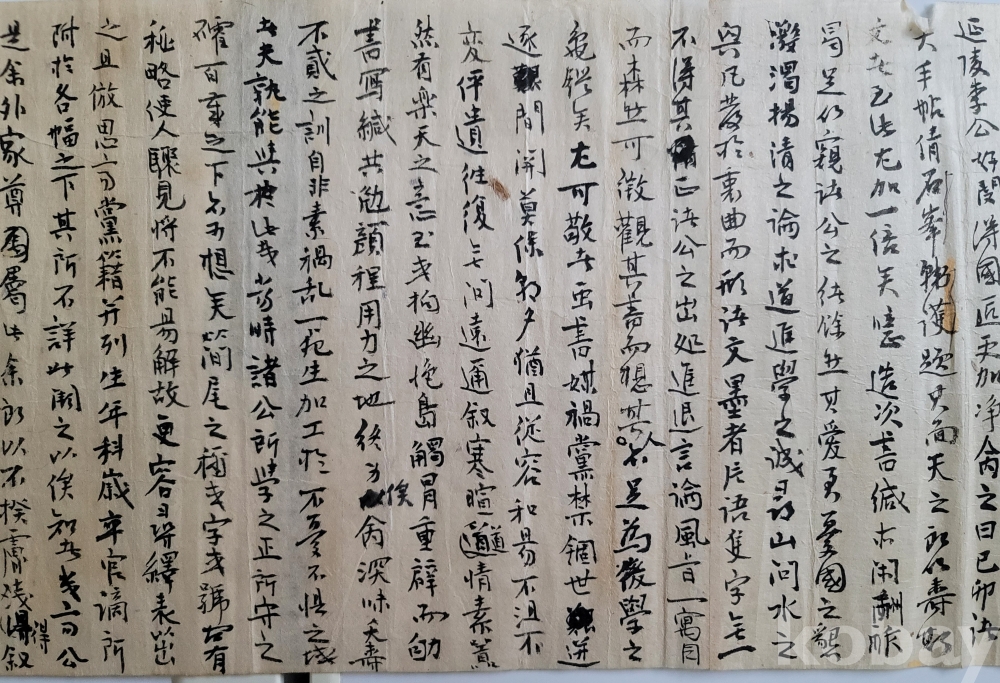 延陵李公好閔得國匠更加之曰己卯諸
大手帖倩石峯題其面天之所以壽斯
文者至此尤加一倍矣噫造次書緘亦閑酬酢
曷足仍窺諸公之緖餘然其愛君憂國之懇
激濁揚清之論求道進學之誠尋山問水之
興凡發於裏曲而形諸文墨者片語隻字無一
不得其正諸公之出處進退言論風旨一寓目
而森然可徵觀其書而想其人不足爲後學之
龜鏡矣尤可敬者蜚書媒禍黨禁錮世迸
逐間關莫保朝夕猶且從容和易不沮不
變伻遺往復之問遠邇叙寒暄道情素
然有樂天之意至或拘幽絶島觸冒重辟而
書寫緘共勉顔程用力之地俟深味夭壽
不貳之訓自非素禍乱一死生加工於不憂不惧之域
者夫孰能與於此哉當時諸公所學之正所守之
確百載之下亦可想矣簡尾之稱或字或號字有
秘略使人驟見將不能易解故更容尋繹表出
之且倣黨籍并列生年科歲卒官謫所
附於各幅之下其所不詳此闕之以俟知者或言公
是余外家尊屬此余所以不揆膚淺得叙